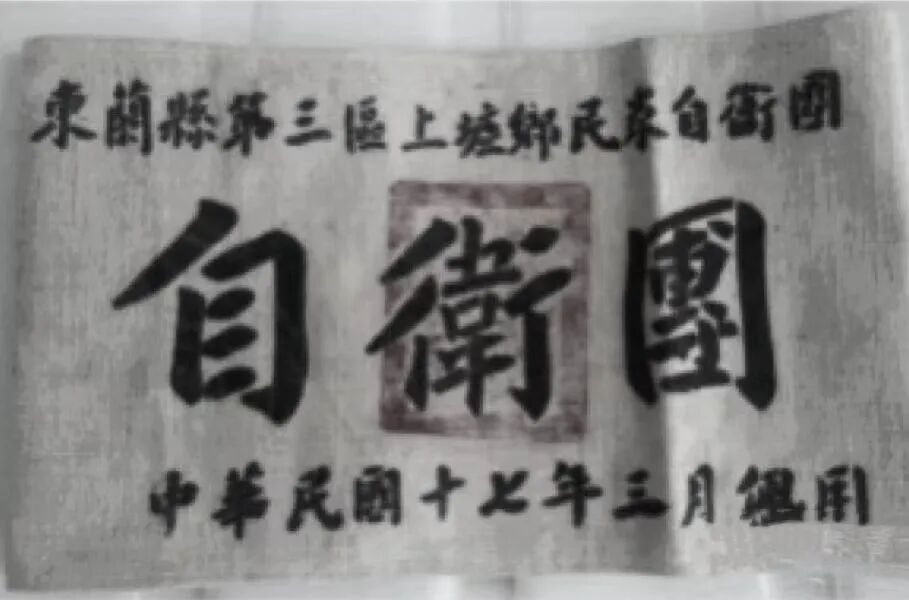 東蘭縣第三區上坡鄉民眾自衛團
自衛團
中華民國十七年三月